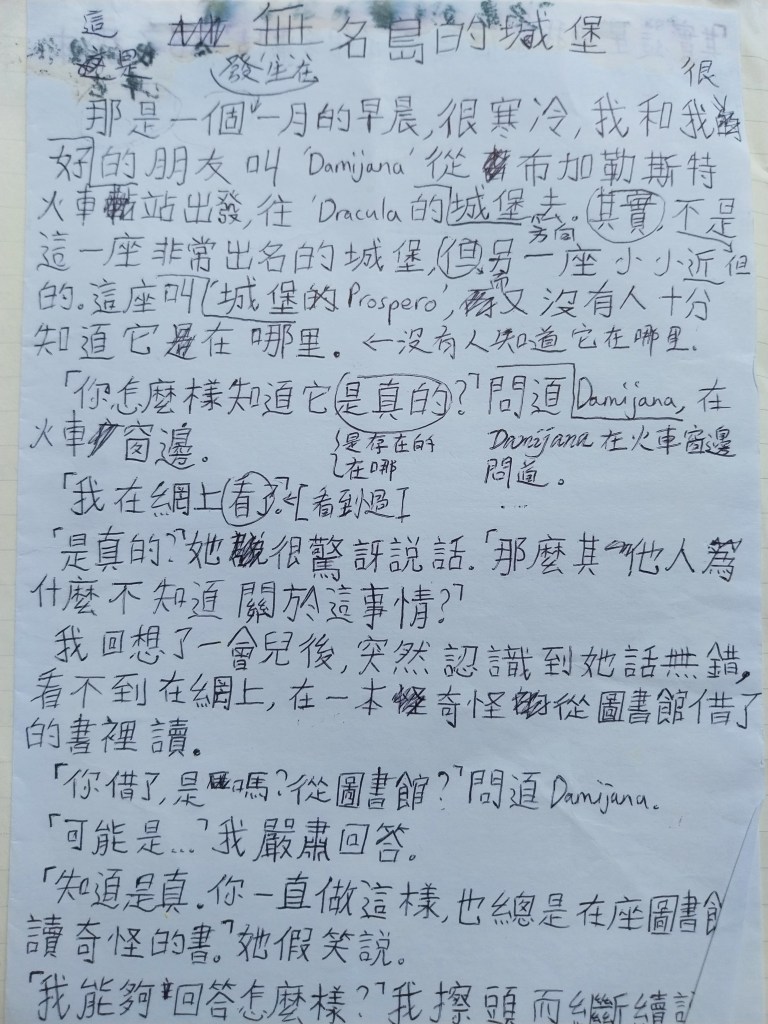 這 無名島的城堡
這是 發生在 很
那是一個一月的早晨,很寒冷,我和我
好的朋友叫 'Damijana' 從布加勒斯特
火車站出發,往 'Dracula 的城堡去。其實,不是
方向
這一座非常出名的城堡,但另一座小小近但
而
的。這座叫 '城堡的 Prospero', 又沒有人十分
知道它在哪里。←沒有人知道它在哪里.
「你怎麼樣知道它是真的?」問道 Damijana, 在
火車窗邊。
是存在的
在哪
Damijana 在火車窗邊
問道。
「我在網上看了。」←[看到過]
....
「是真的?」她很驚訝說話.「那麼其他人為
什麼不知道關於這事情?」
我回想了一會兒後,突然認識到她話無錯,
看不到在網上,在一本奇怪從圖書館借了
的書裡讀。
「你借了,是嗎?從圖書館?」問道 Damijana.
「可能是...」我嚴肅回答。
「知道是真.你一直做這樣,也總是在座圖書館
讀奇怪的書。」她假笑說。
「我能夠回答怎麼樣?」我擦頭而繼續